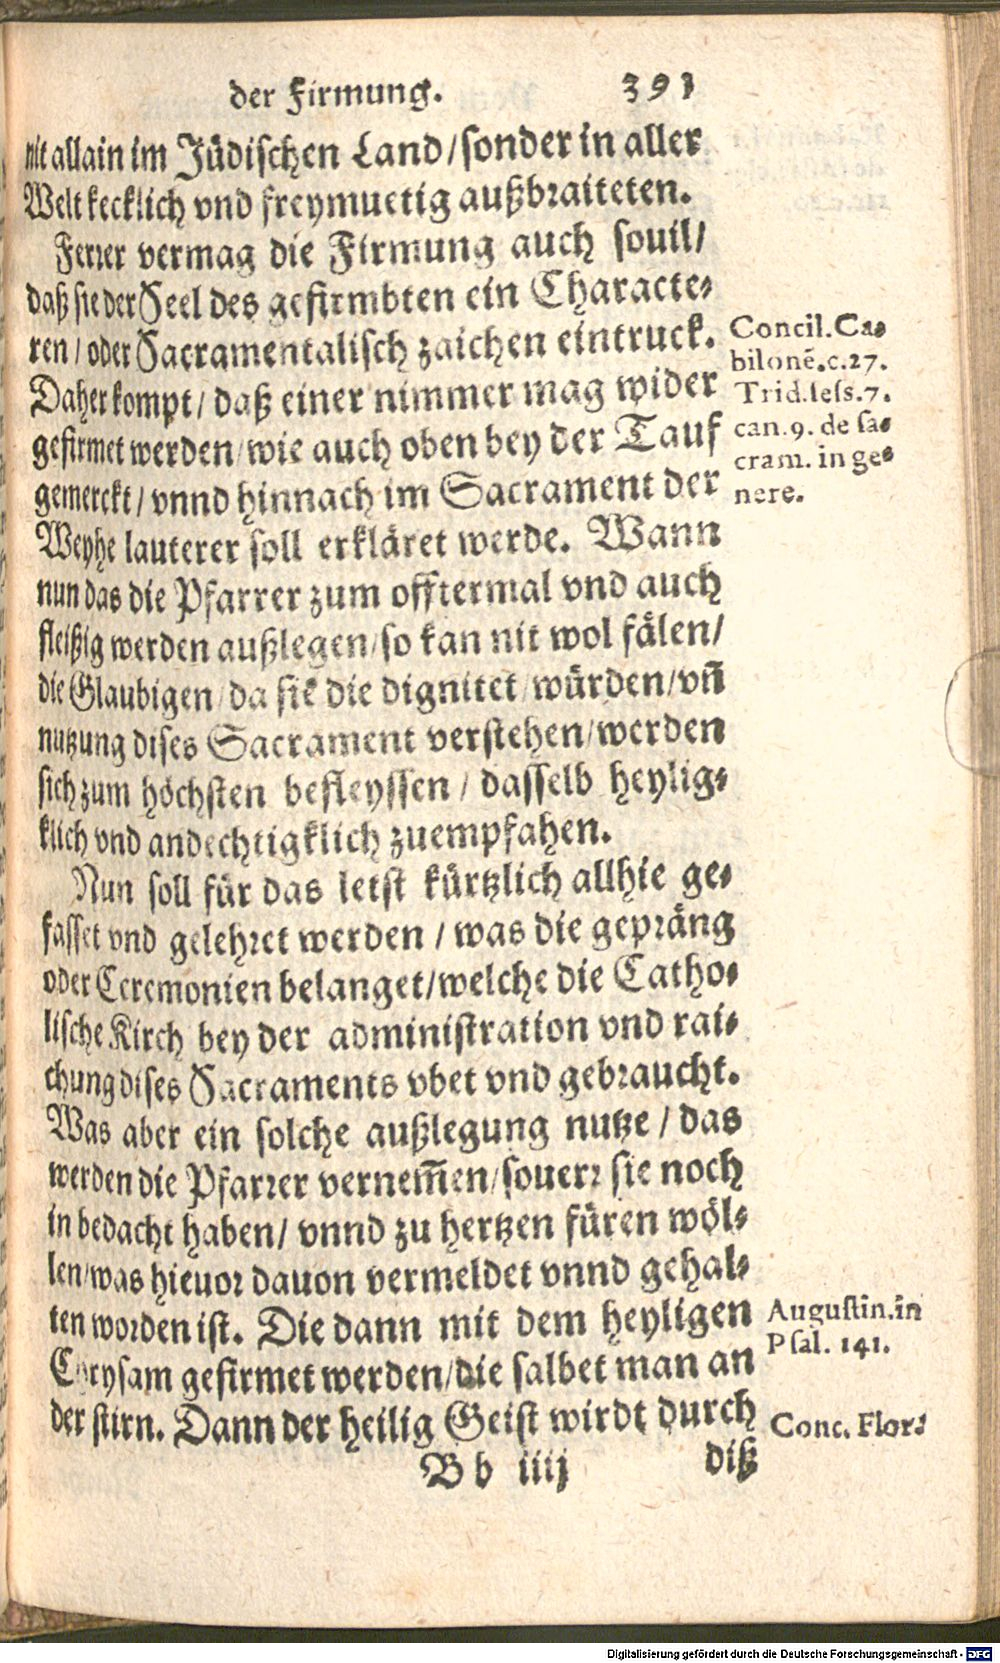 der Firmung. 391
nit allain im Jüdischen Land/sonder in aller
Welt kecklich vnd freymuetig außbraiteten.
Ferrer vermag die Firmung auch souil/
daß sie der Seel des gefirmbten ein Characte-
ren/oder Sacramentalisch zaichen eintruck.
Daher kompt/daß einer nimmer mag wider
gefirmet werden/wie auch oben bey der Tauf
gemerckt/vnnd hinnach im Sacrament der
Weyhe lauterer soll erkläret werde. Wann
nun das die Pfarrer zum offtermal vnd auch
fleißig werden außlegen/so kan nit wol fälen/
die Glaubigen/da sie die dignitet/würden/vñ
nutzung dises Sacrament verstehen/werden
sich zum höchsten befleyssen/dasselb heylig-
klich vnd andechtigklich zuempfahen.
Nun soll für das letst kürtzlich allhie ge-
fasset vnd gelehret werden/was die gepräng
oder Ceremonien belanget/welche die Catho-
lische Kirch bey der administration vnd rai-
chung dises Sacraments vbet vnd gebraucht.
Was aber ein solche außlegung nutze/das
werden die Pfarrer vernem̃en/souerr sie noch
in bedacht haben/vnnd zu hertzen füren wöl-
len/was hieuor dauon vermeldet vnnd gehal-
ten worden ist. Die dann mit dem heyligen
Chrysam gefirmet werden/die salbet man an
der stirn. Dann der heilig Geist wirdt durch
B b iiij diß
Concil. Ca-
bilonẽ.c.27.
Trid.sess.7.
can.9. de sa-
cram. in ge-
nere.
Augustin.in
Psal. 141.
Conc. Flor.
Digitalisierung gefördert durch die Deutsche Forschungsgemeinschaft - DFG